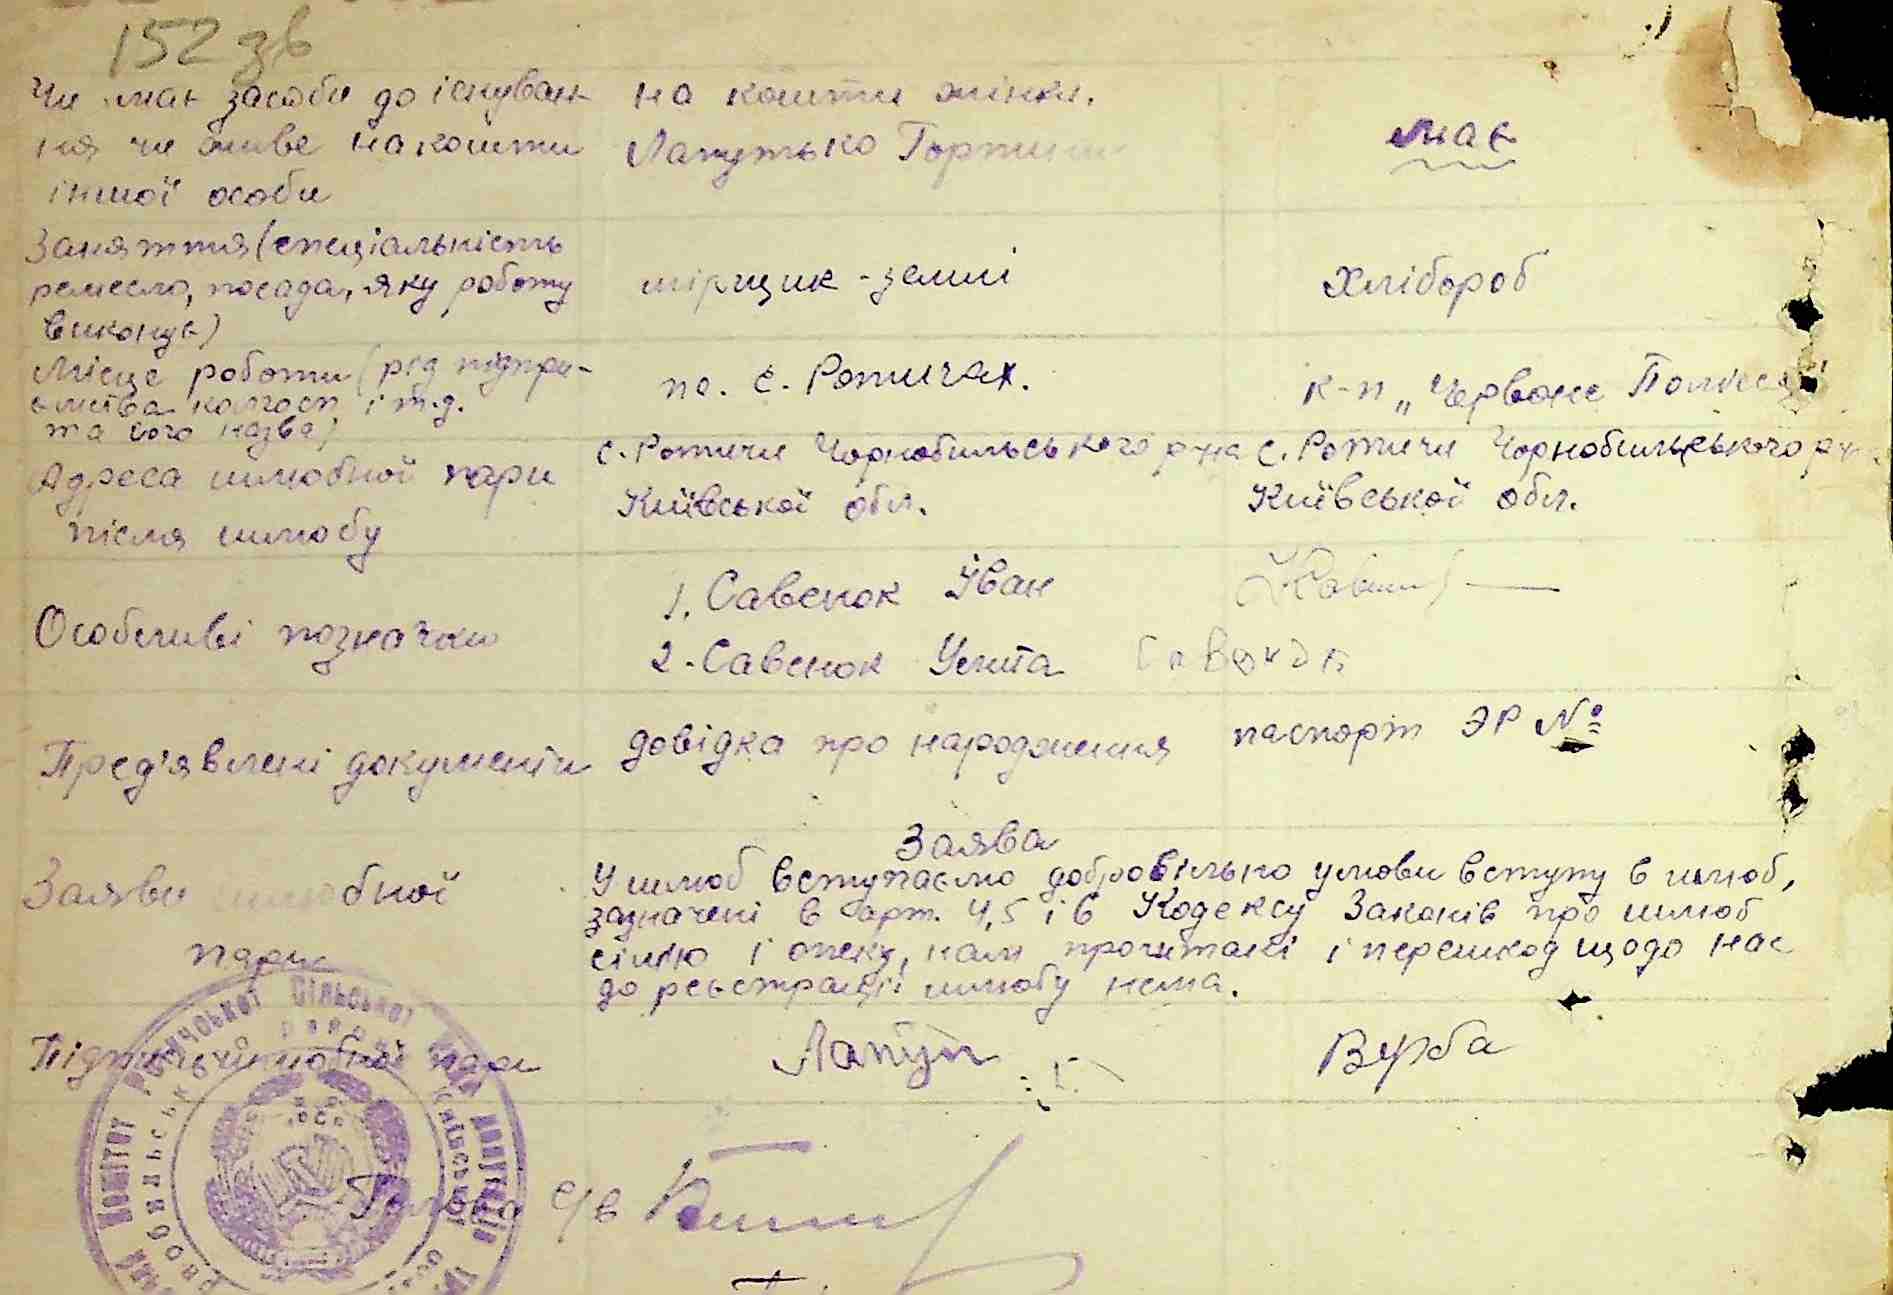 152 зв
Чи має засоби до існуван-
ня чи живе на кошти
іншої особи
на кошти жінки.
Лапутько Горпини
має
Заняття (спеціальність
ремесло, посада, яку роботу
виконує)
мірщик-землі
хлібороб
Місце роботи (рід підпри-
ємства колгосп і т.д.
та його назва)
по. с. Ротичах.
к-п „Червоне Полісся"
Адреса шлюбної пари
після шлюбу
с. Ротичи Чорнобильського р-на
Київської обл.
с. Ротичи Чорнобильського р-
Київської обл.
Особливі позначки
1. Савенок Іван
2. Савенок Улита
Пред'явлені документи
довідка про народження
паспорт ЭР №
Заяви шлюбної
пари
Заява
У шлюб вступаємо добровільно умови вступу в шлюб,
зазначені в арт. 4,5 і 6 Кодексу Законів про шлюб
сім'ю і опеку, нам прочитані і перешкод щодо нас
до реєстрації шлюбу нема.
Підписи шлюбної пари
Лапут
Вурба
Голова с/в